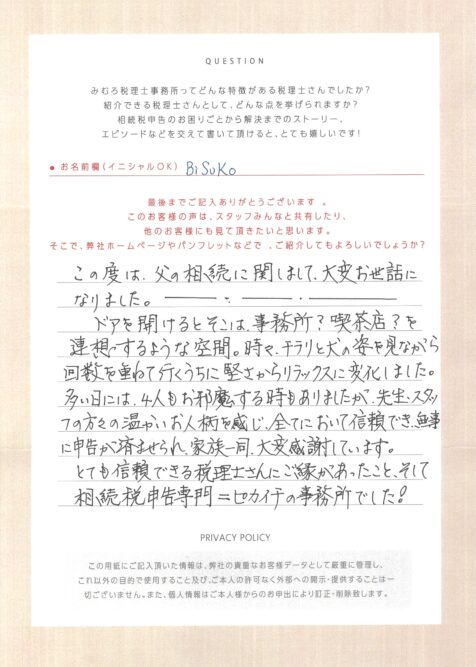 QUESTION
みむろ税理士事務所ってどんな特徴がある税理士さんでしたか?
紹介できる税理士さんとして、どんな点を挙げられますか?
相続税申告のお困りごとから解決までのストーリー、
エピソードなどを交えて書いて頂けると、とても嬉しいです!
● お名前欄(イニシャルOK) BiSuKo
最後までご記入ありがとうございます 。
このお客様の声は、スタッフみんなと共有したり、
他のお客様にも見て頂きたいと思います。
そこで、弊社ホームページやパンフレットなどで 、ご紹介してもよろしいでしょうか?
この度は、父の相続に関しまして、大変お世話に
なりました。
ドアを開けるとそこは、事務所?喫茶店?を
連想するような空間。時々、チラリと犬の姿を見ながら
回数を重ねて行くうちに堅さからリラックスに変化しました。
多い日には、4人もお邪魔する時もありましたが、先生・スタッ
フの方々の温かいお人柄を感じ、全てにおいて信頼でき、無事
に申告が済ませられ、家族一同、大変感謝しています。
とても信頼できる税理士さんにご縁があったこと、そして
相続税申告専門=ピカイチの事務所でした!
PRIVACY POLICY
この用紙にご記入頂いた情報は、弊社の貴重なお客様データとして厳重に管理し、
これ以外の目的で使用すること及び、ご本人の許可なく外部への開示・提供することは一
切ございません。また、個人情報はご本人様からのお申出により訂正・削除致します。